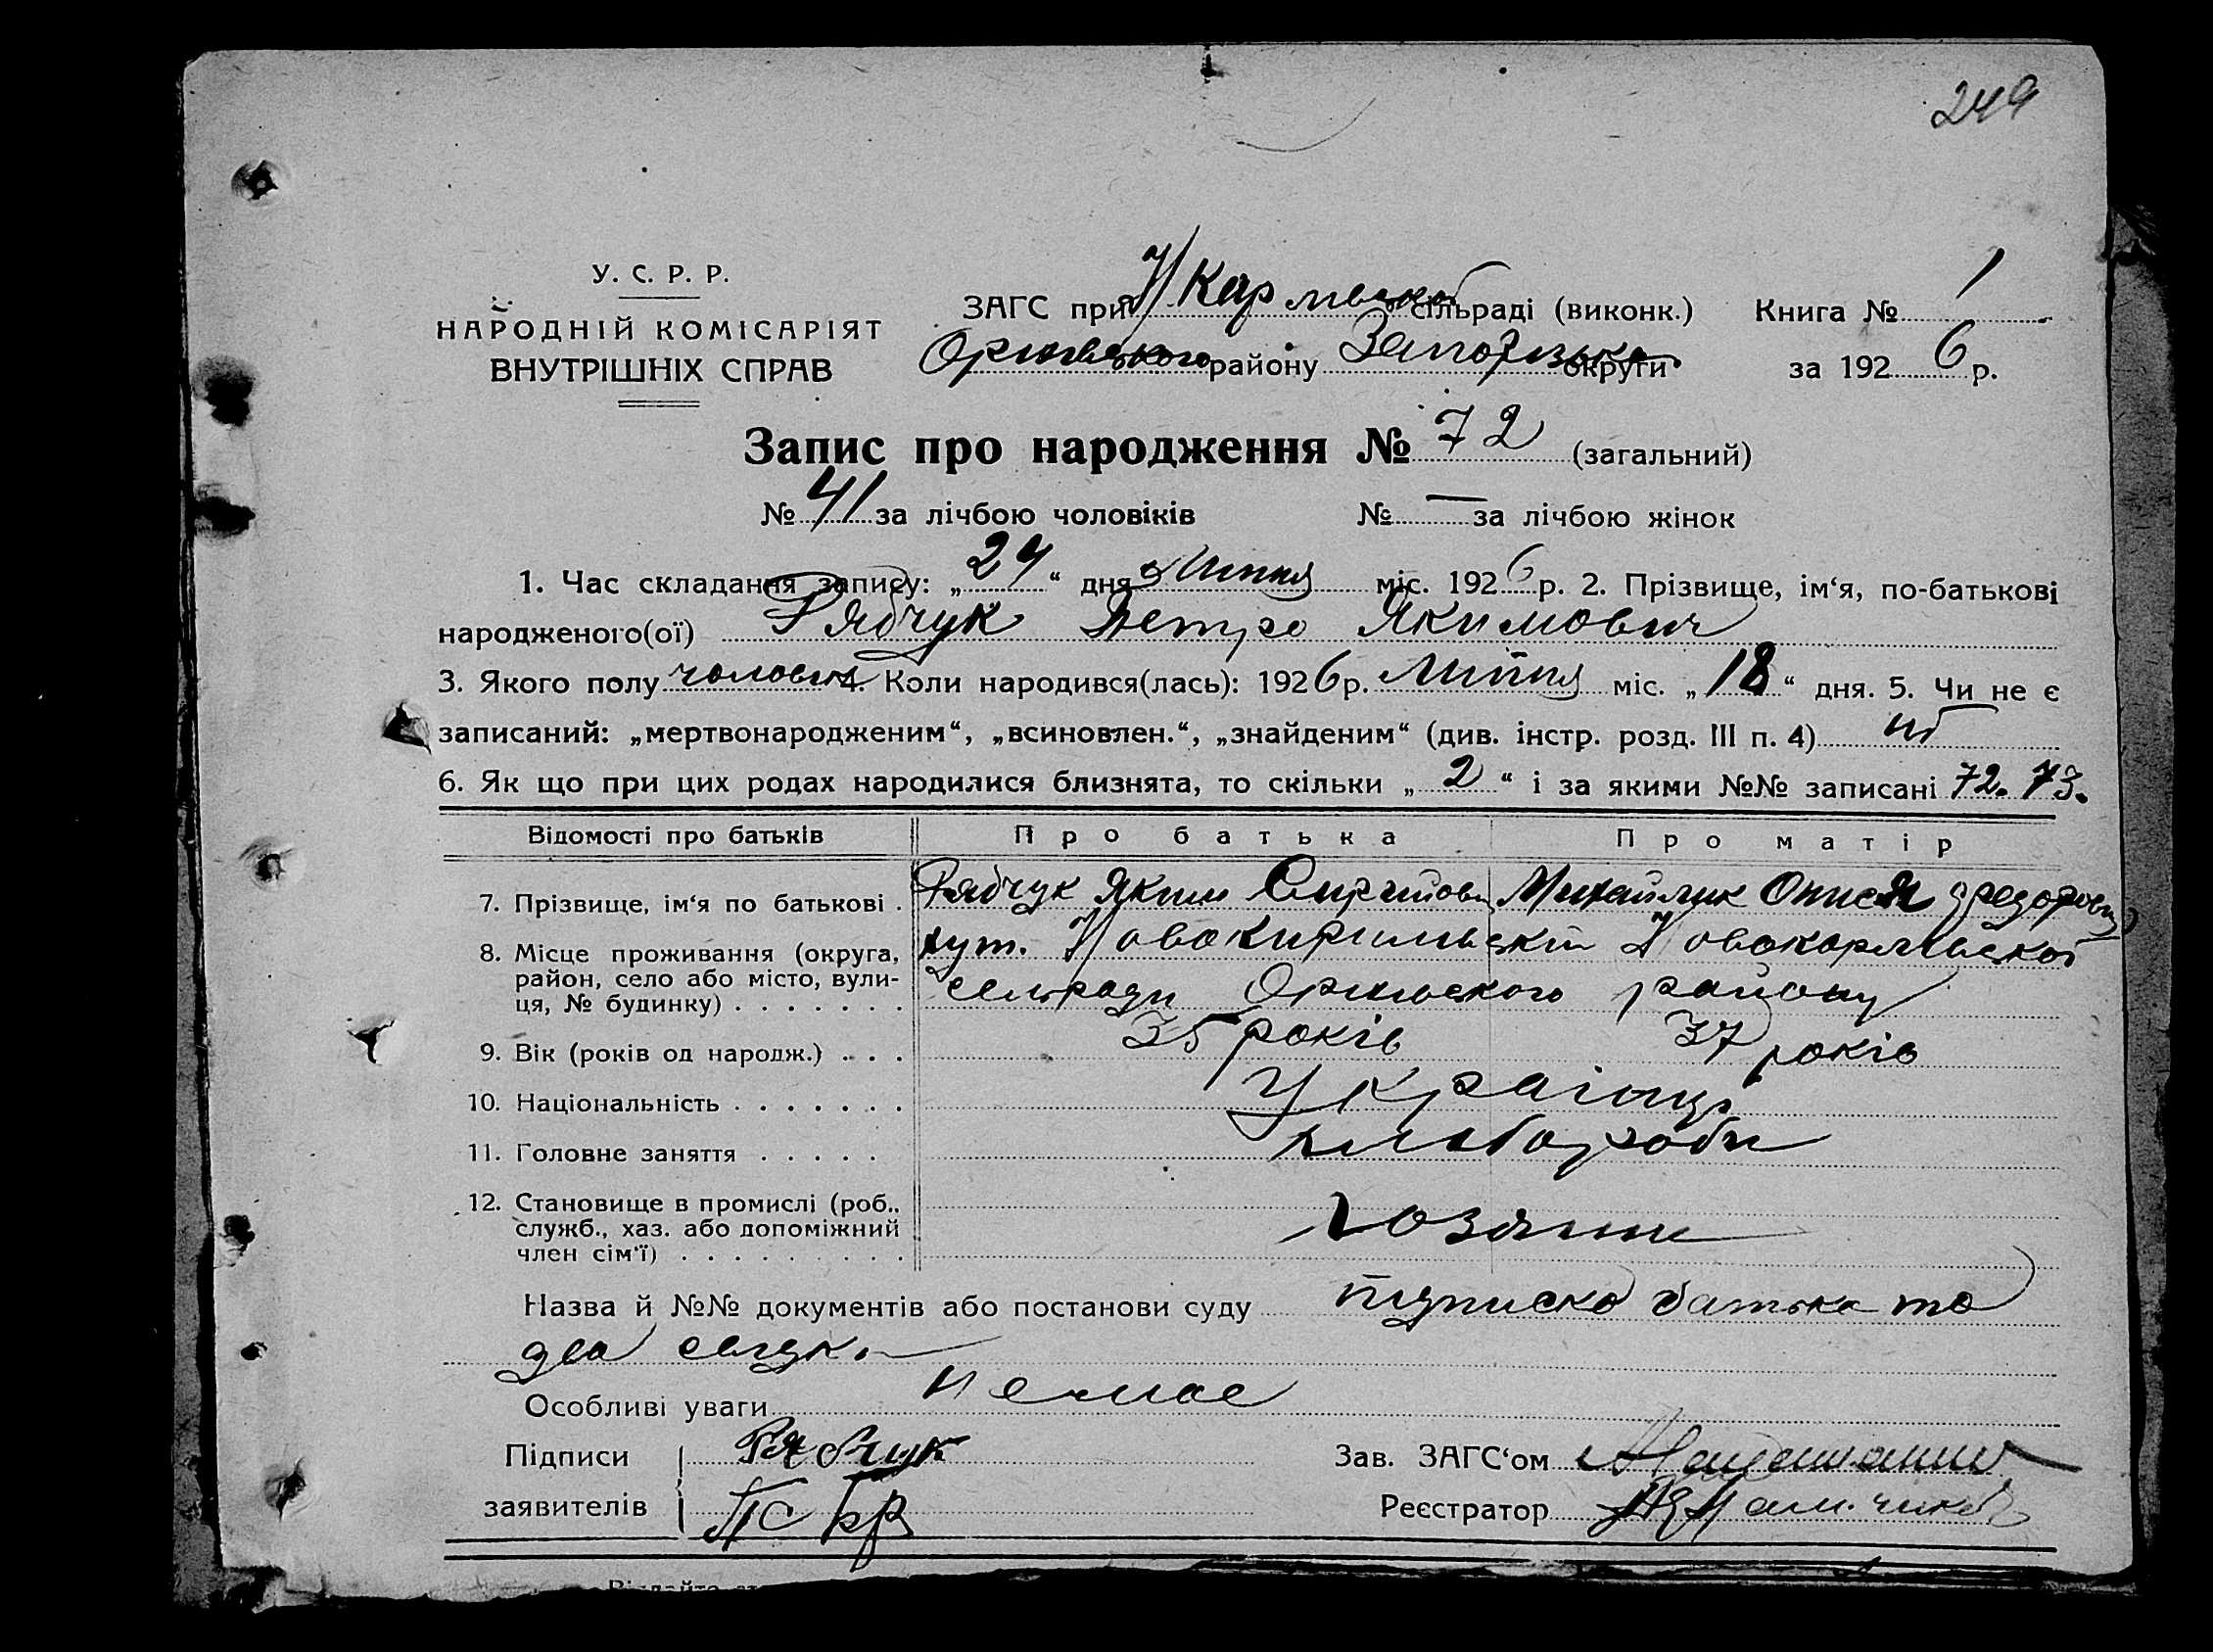 249
У. С. Р. Р.
НАРОДНІЙ КОМІСАРІЯТ
ВНУТРІШНІХ СПРАВ
ЗАГС при Н/Кар сільраді (виконк.) Книга № 1
району Запорізької округи за 1926 р.
Запис про народження № 72 (загальний)
№ 41 за лічбою чоловіків № — за лічбою жінок
1. Час складання запису: „24“ дня Липня міс. 1926 р. 2. Прізвище, ім‘я, по-батькові
народженого(ої) Рябчук Петро Якимович
3. Якого полу чоловіч 4. Коли народився(лась): 1926 р. Липня міс. „18“ дня. 5. Чи не є
записаний: „мертвонародженим“, „всиновлен.“, „знайденим“ (див. інстр. розд. III п. 4) ні
6. Як що при цих родах народилися близнята, то скільки „2“ і за якими №№ записані 72. 73.
Відомості про батьків Про батька Про матір
7. Прізвище, ім‘я по батькові . Рябчук Яким Михайлик Федоровна
8. Місце проживання (округа, район, село або місто, вулиця, № будинку) . . . . . . . хут. Новокирилівскій Новокарлівскої
сельради Оріхівского району
9. Вік (років од народж.) . . . 35 років 37 років
10. Національність . . . . . . . Українці
11. Головне заняття . . . . . хлібороби
12. Становище в промислі (роб., служб., хаз. або допоміжний член сім‘ї) . . . . . . . . . хозяини
Назва й №№ документів або постанови суду підписка батька та
два свідки
Особливі уваги немає
Підписи заявителів Рябчук
Зав. ЗАГС‘ом
Реєстратор